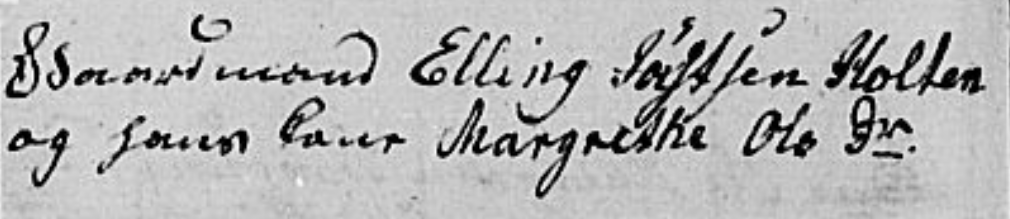 Gaardmand Elling Jöstsen Holten
og hans kone Margrethe Ols Dr.